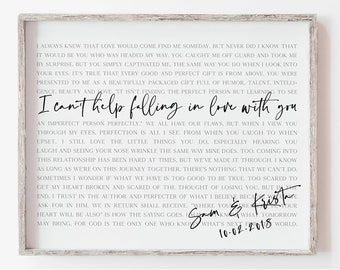 I ALWAYS KNEW THAT LOVE WOULD COME FIND ME SOMEDAY, BUT NEVER DID I KNOW THAT
IT WOULD BE YOU WHO WAS HEADED MY WAY. YOU CAUGHT ME OFF GUARD AND TOOK ME
BY SURPRISE, BUT YOU SIMPLY CAPTIVATED ME. THE SAME WAY YOU DO WHEN I LOOK INTO
YOUR EYES. IT'S TRUE THAT EVERY GOOD AND PERFECT GIFT IS FROM ABOVE. YOU WERE
PRESENTED TO ME AS A BEAUTIFULLY PACKAGED GIFT FULL OF HUMOR, TALENT, INTELL-
IGENCE, BEAUTY AND ISN'T FINDING THE PERFECT PERSON BUT LEARNING TO
I can't help falling in love with you
AN IMPERFECT PERSON PERFECTLY." WE ALL HAVE OUR FLAWS, BUT WHEN YOU
THROUGH MY EYES, PERFECTION IS ALL I SEE. FROM WHEN YOU LAUGH TO WHEN
UPSET. I STILL LOVE THE LITTLE THINGS YOU DO, ESPECIALLY HEARING
LAUGH AND SEEING YOUR NOSE WRINKLE THE SAME WAY MINE DOES, TOO. COMING INTO
THIS RELATIONSHIP HAS BEEN HARD AT TIMES, BUT WE'VE MADE IT THROUGH. I KNOW
AS LONG AS WE'RE ON THIS JOURNEY TOGETHER, THERE'S NOTHING THAT WE CAN'T DO.
SOMETIMES I WONDER IF WHAT WE HAVE IS TOO GOOD TO BE TRUE. TOO SCARED TO
GET MY HEART BROKEN AND SCARED OF THE THOUGHT OF LOSING YOU. BUT IN
END, I TRUST IN THE AUTHOR AND PERFECTER OF WHAT I BELIEVE
ASK FOR IN HIM, WE IN RETURN SHALL RECEIVE.
Sam & Krista
HEART WILL BE ALSO" IS HOW THE SAYING GOES. TOMORROW
10.02.2018
MAY BRING, FOR GOD IS THE ONLY ONE WHO KNOWS WHAT'S NEXT